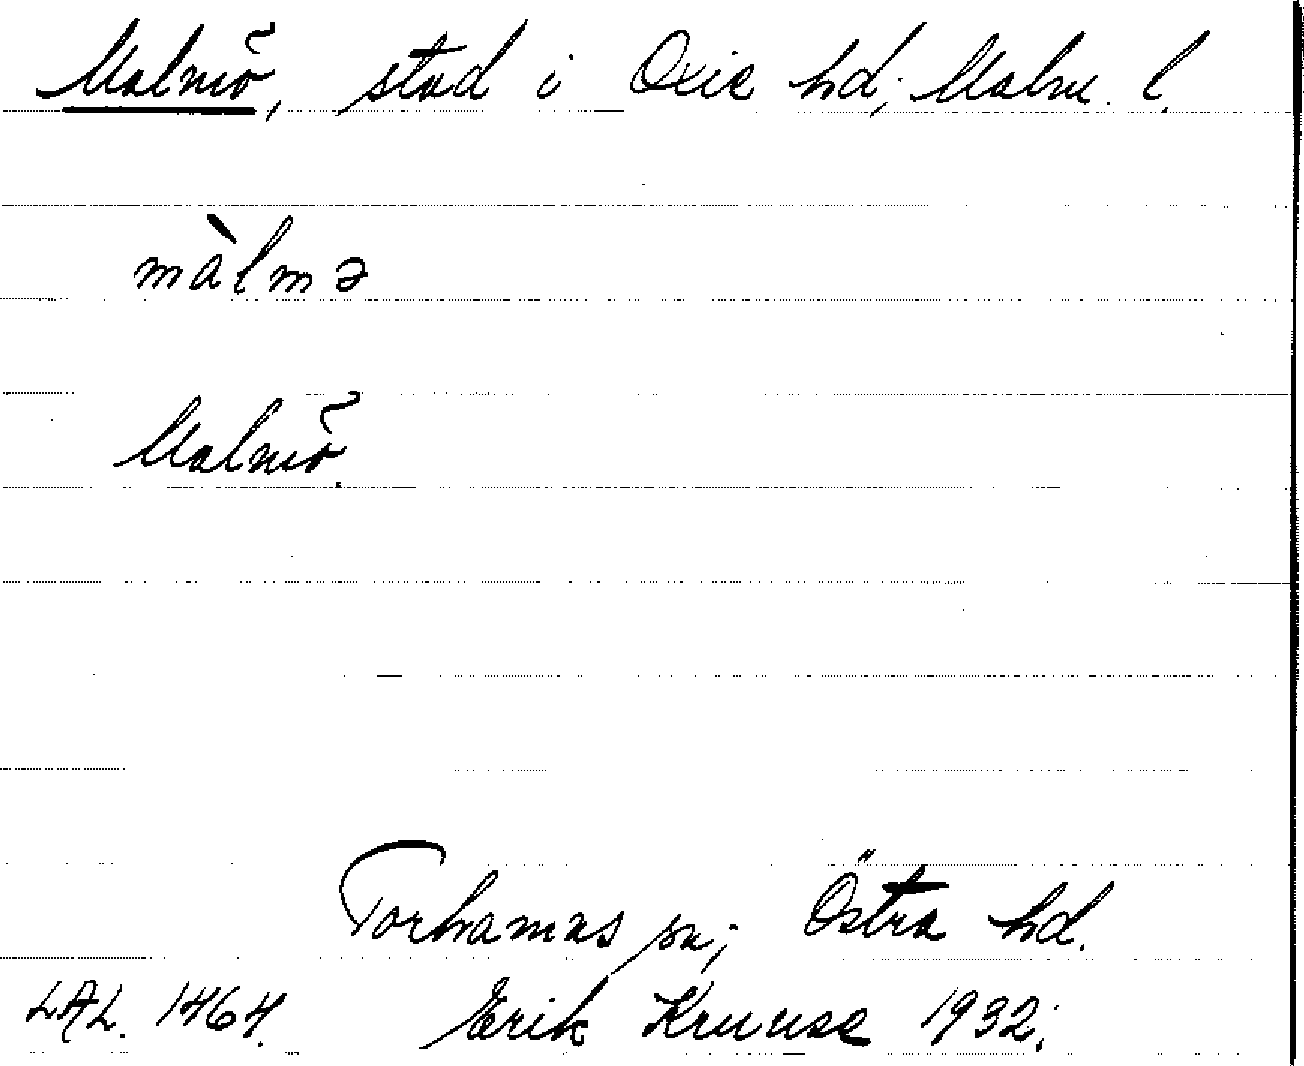 Malmö, stad i Oxie hd; Malm. l.
màlmə
Malmö.
Torhamns sn; Östra hd.
LAL. 1464. Erik Kruuse 1932.